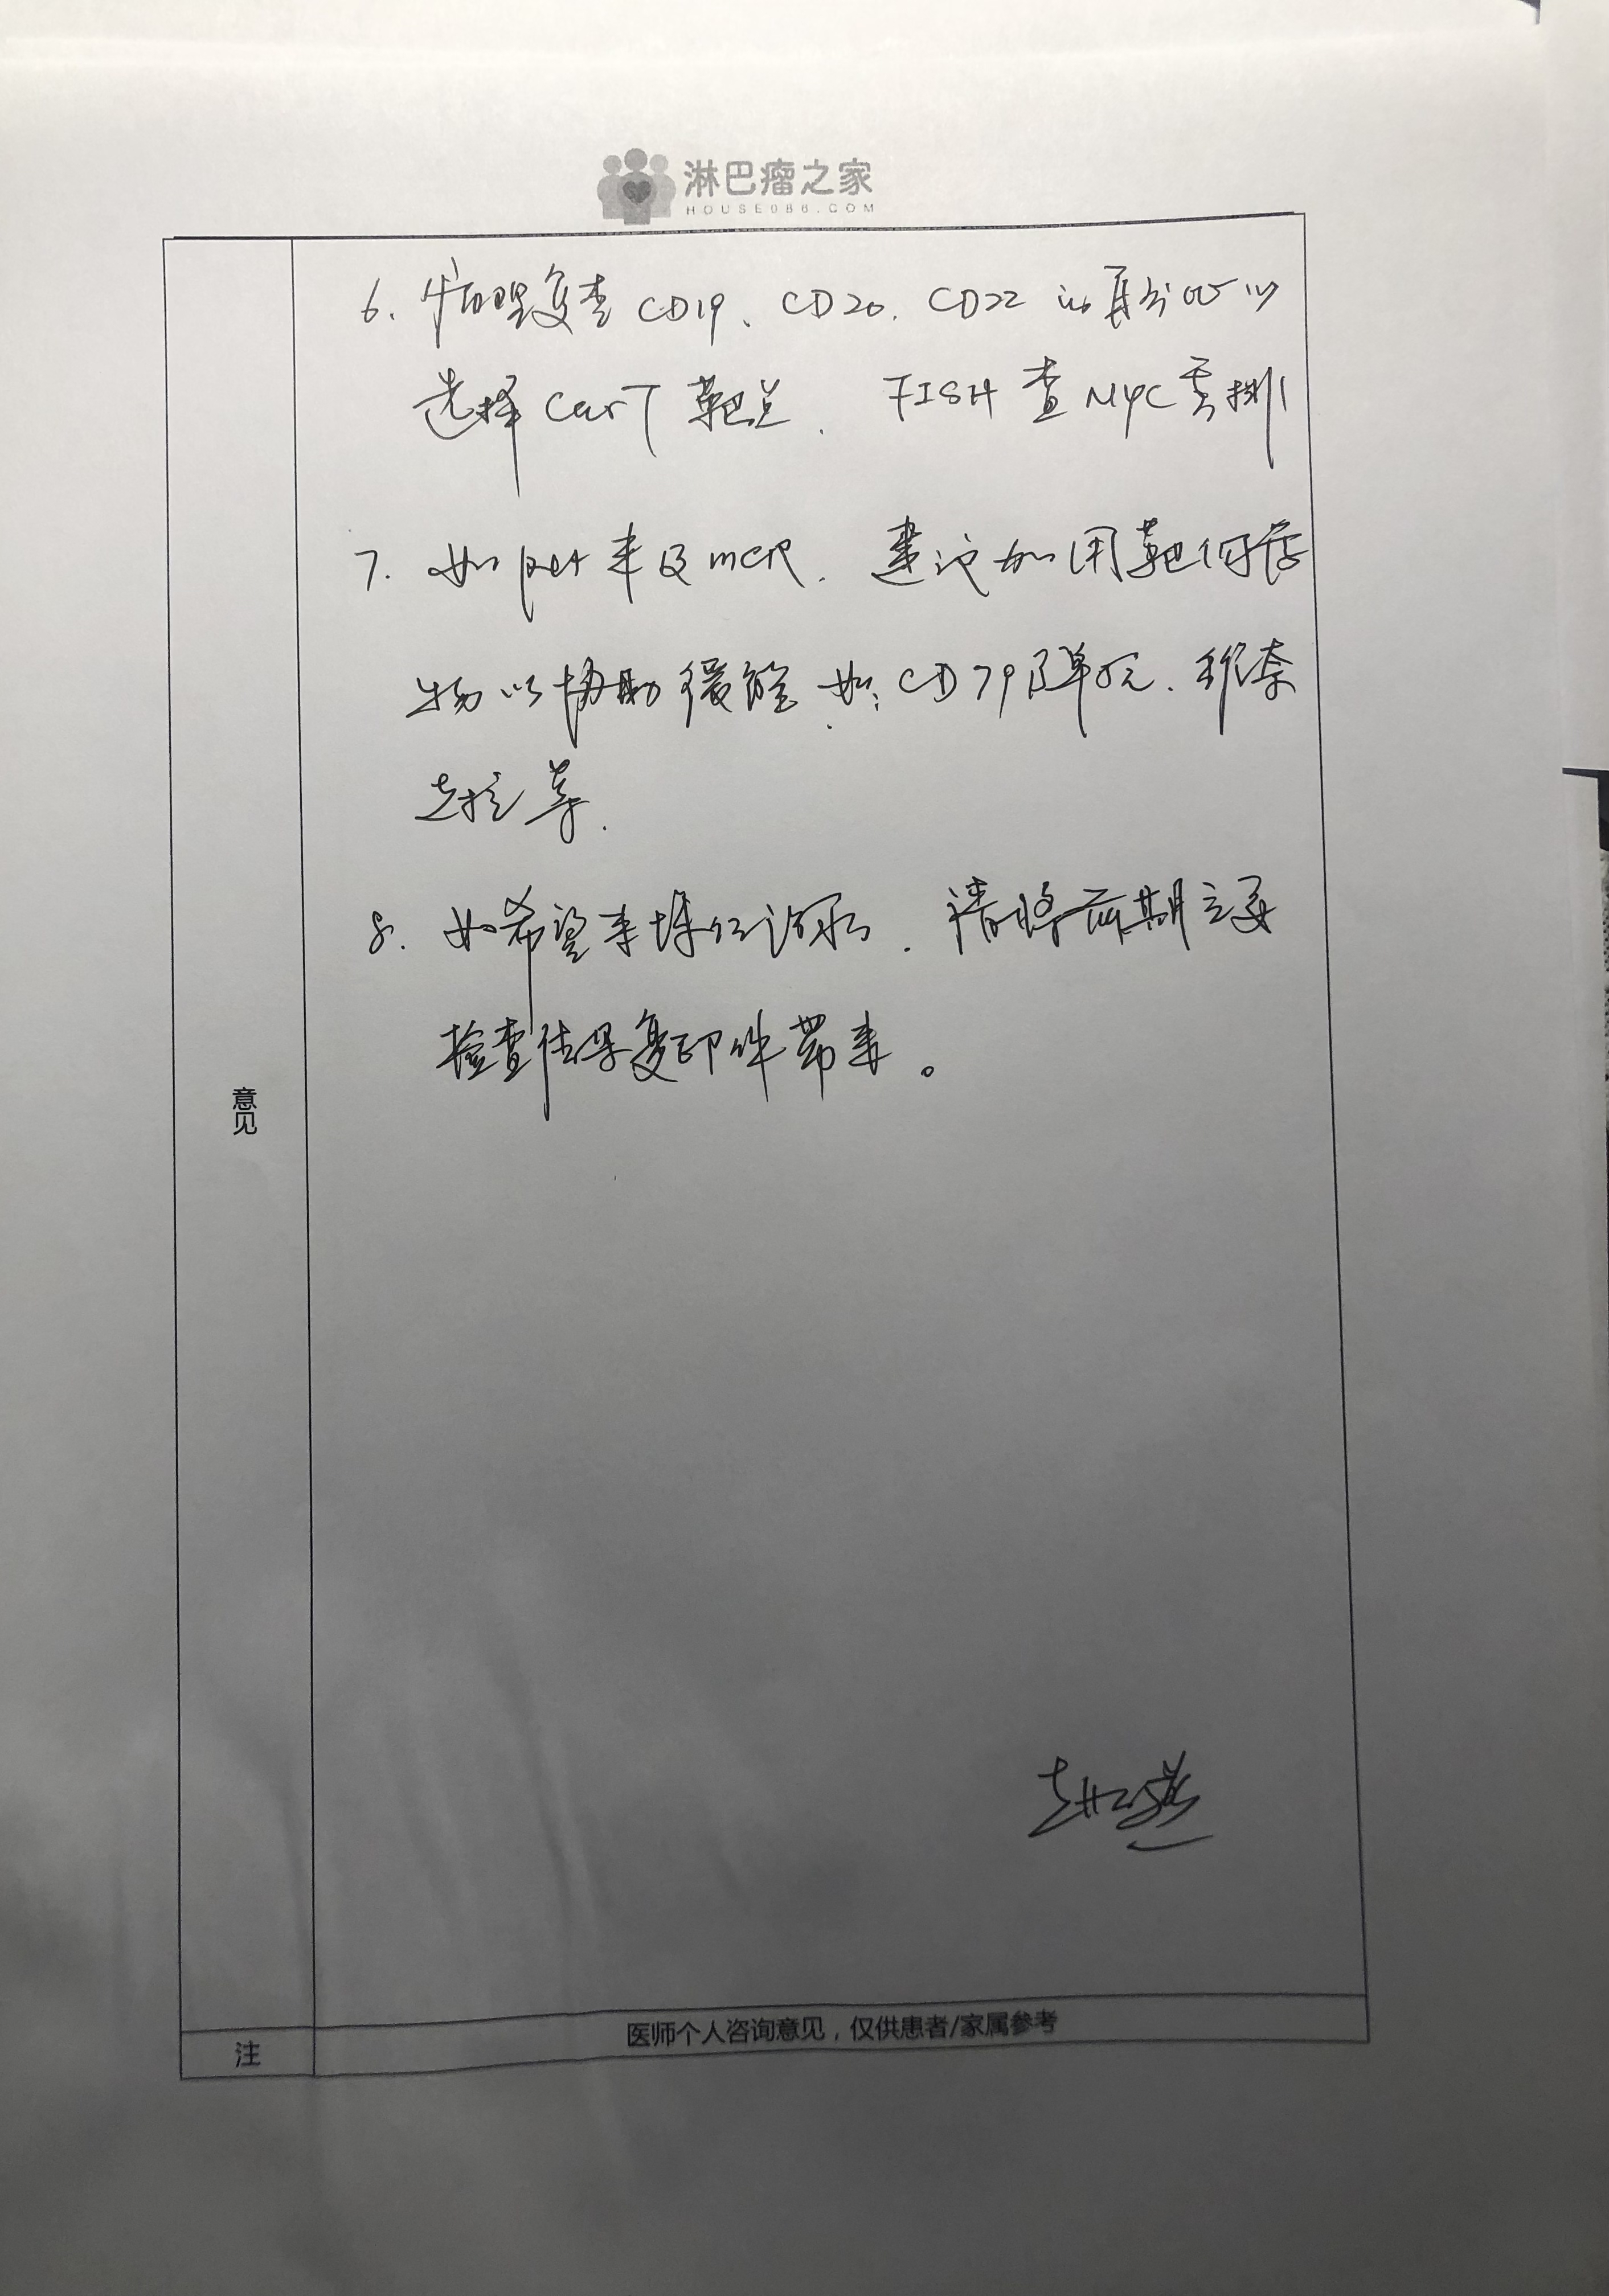 淋巴瘤之家
HOUSE086.COM
6. 病理复查 CD19、CD20、CD22 以
选择 CarT 靶点. FISH 查 MYC 重排
7. 如 pet 未及 mCR. 建议加用靶向药
物以协助缓解. 如: CD79β单抗.
等.
8. 如希望来诊. 请将前期主要
检查结果复印件带来。
意见
注
医师个人咨询意见，仅供患者/家属参考